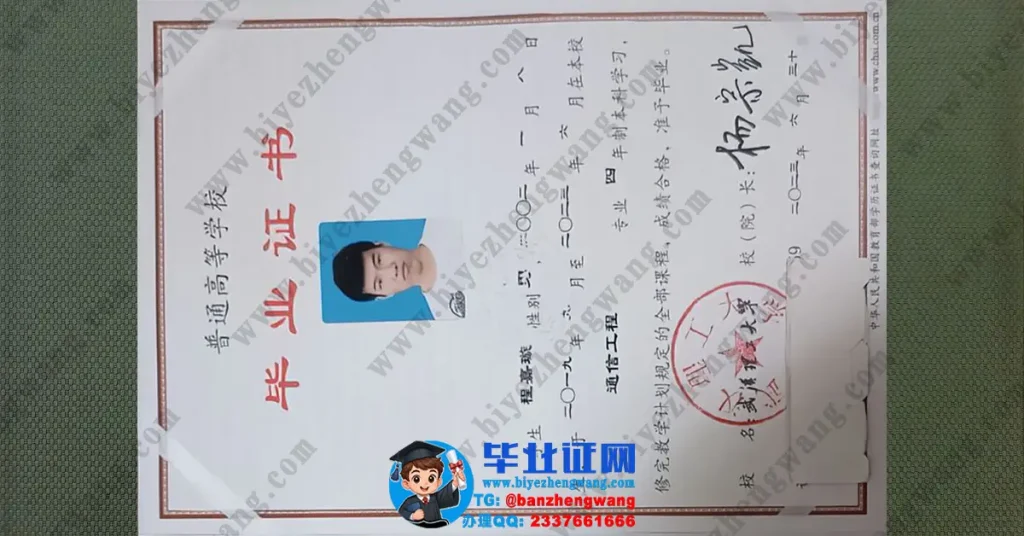 普通高等学校
毕业证书
生 程嘉璇 性别 ，二〇〇二年 一 月 八 日
于 二〇一九 年 九 月至 二〇二三 年 六 月在本校
通信工程 专业 四 年制本科学习，
修完教学计划规定的全部课程，成绩合格，准予毕业。
校 名：武汉理工大学 校（院）长：杨宗凯
二〇二三年 六 月 三十
中华人民共和国教育部学历证书查询网址 www.chsi.com.cn
毕业证网
www.biyezhengwang.com
TG: @banzhengwang
办理QQ: 2337661666
www.biyezhengwang.com